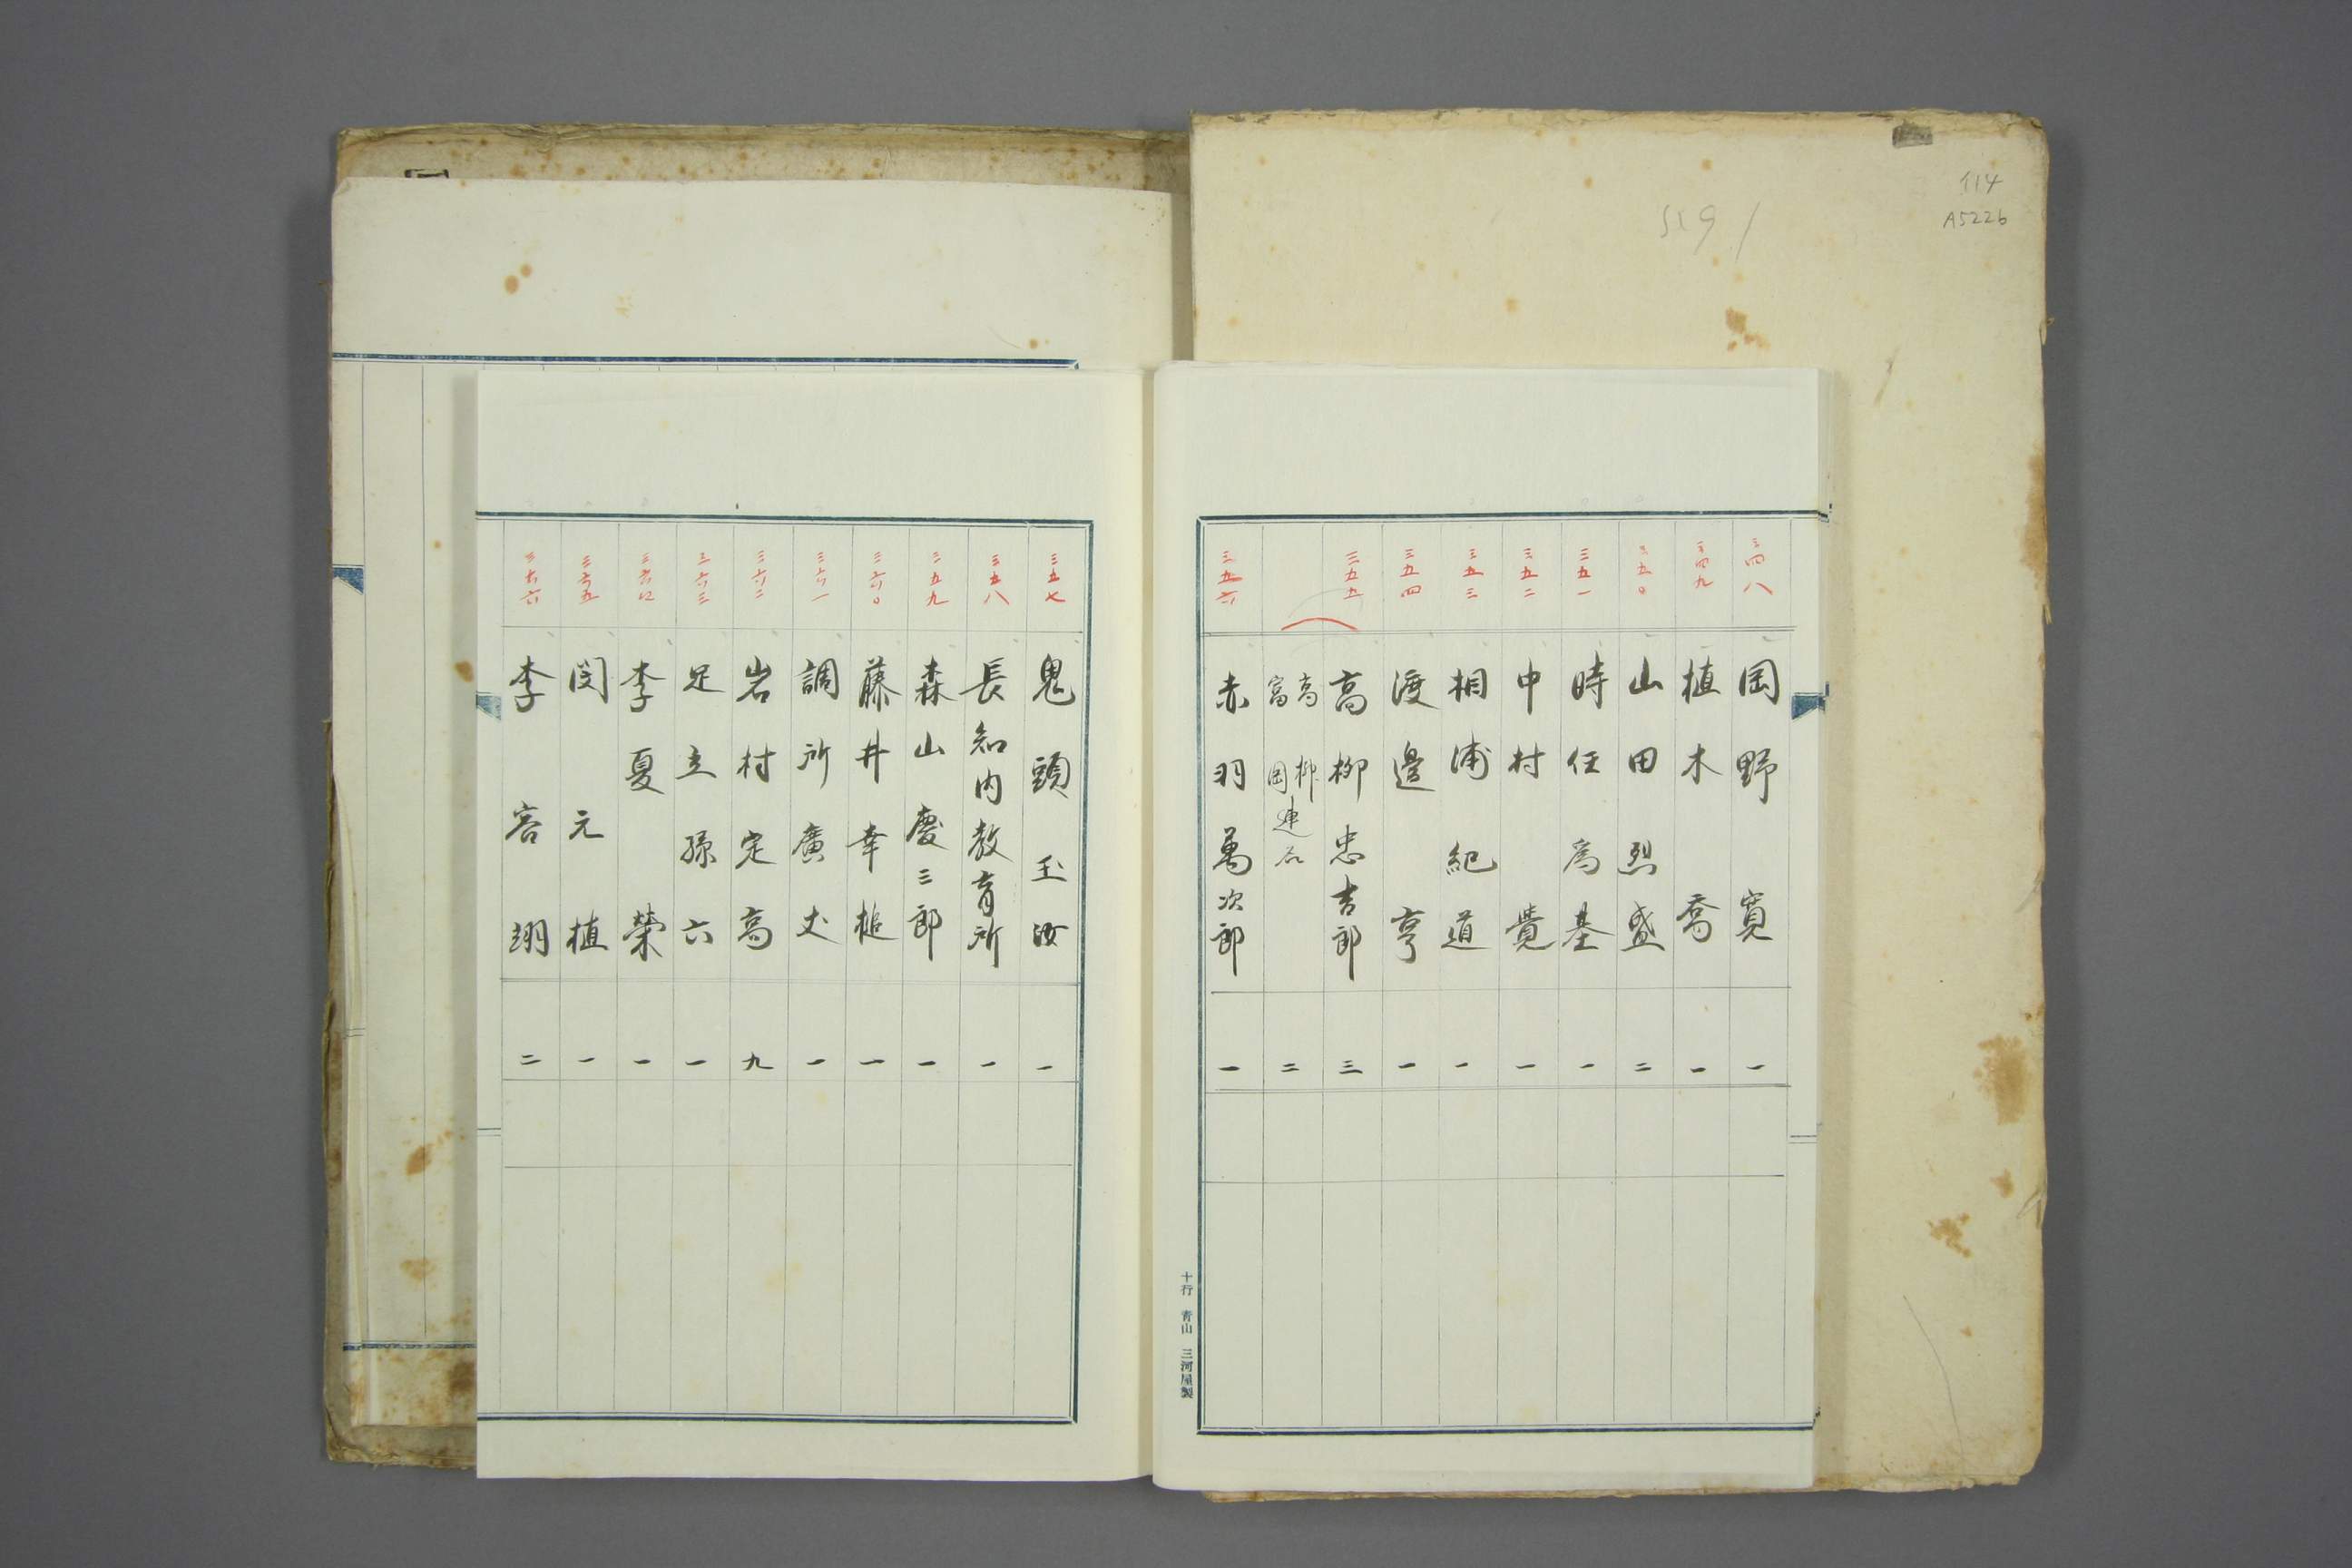 114
A5226
三四八 岡野寛 一
三四九 植木喬 一
三五〇 山田烈盛 二
三五一 時任為基 一
三五二 中村覺 一
三五三 相浦紀道 一
三五四 渡邉亨 一
三五五 高柳忠吉郎 三
高柳
富岡連名 二
三五六 赤羽萬次郎 一
十行 青山 三河屋製
三五七 鬼頭玉汝 一
三五八 長知内教育所 一
三五九 森山慶三郎 一
三六〇 藤井幸槌 一
三六一 調所廣丈 一
三六二 岩村定高 九
三六三 足立孫六 一
三六四 李夏榮 一
三六五 閔元植 一
三六六 李容翊 二